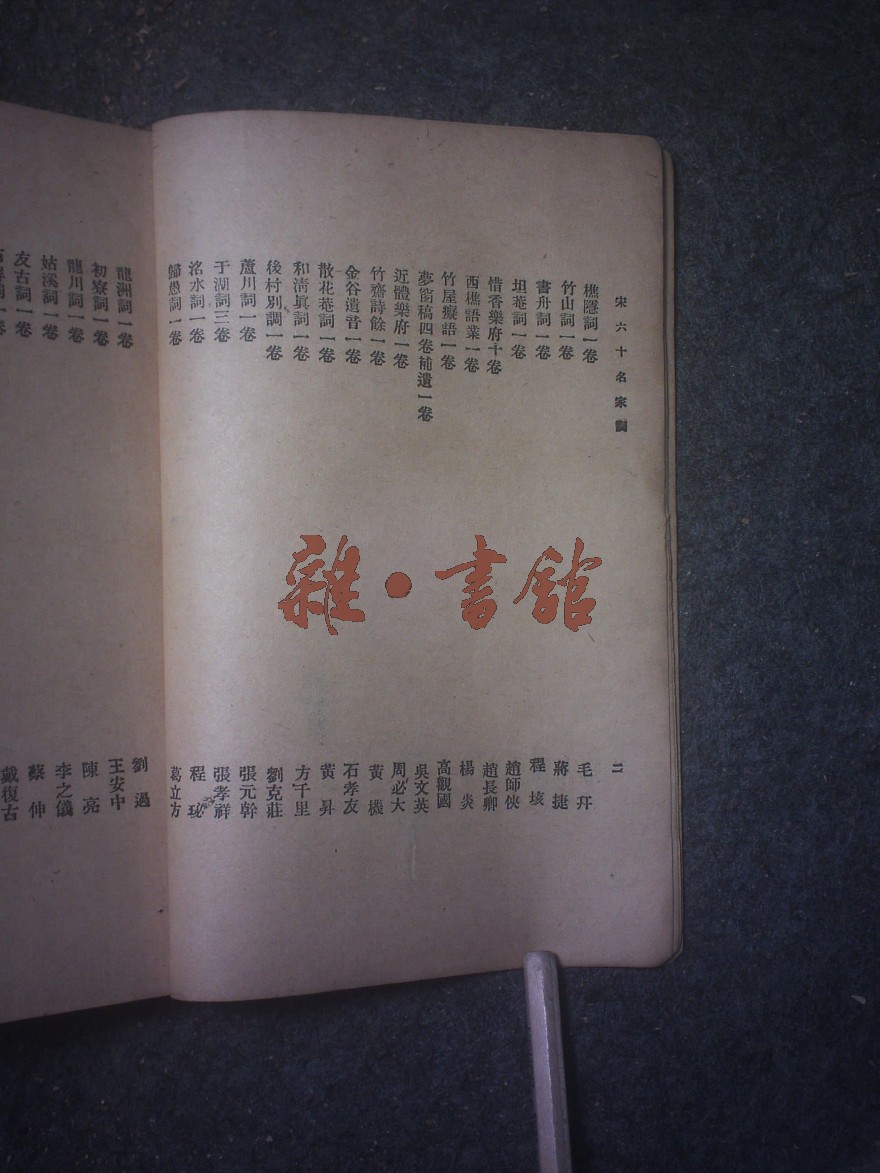 宋六十名家詞 二
樵隱詞一卷 毛幵
竹山詞一卷 蔣捷
書舟詞一卷 程垓
坦菴詞一卷 趙師俠
惜香樂府十卷 趙長卿
西樵語業一卷 楊炎
竹屋癡語一卷 高觀國
夢窗稿四卷補遺一卷 吳文英
近體樂府一卷 周必大
竹齋詩餘一卷 黃機
金谷遺音一卷 石孝友
散花菴詞一卷 黃昇
和清眞詞一卷 方千里
後村別調一卷 劉克莊
蘆川詞一卷 張元幹
于湖詞三卷 張孝祥
洺水詞一卷 程珌
歸愚詞一卷 葛立方
龍洲詞一卷 劉過
初寮詞一卷 王安中
龍川詞一卷 陳亮
姑溪詞一卷 李之儀
友古詞一卷 蔡伸
石屏詞一卷 戴復古
雜·書館